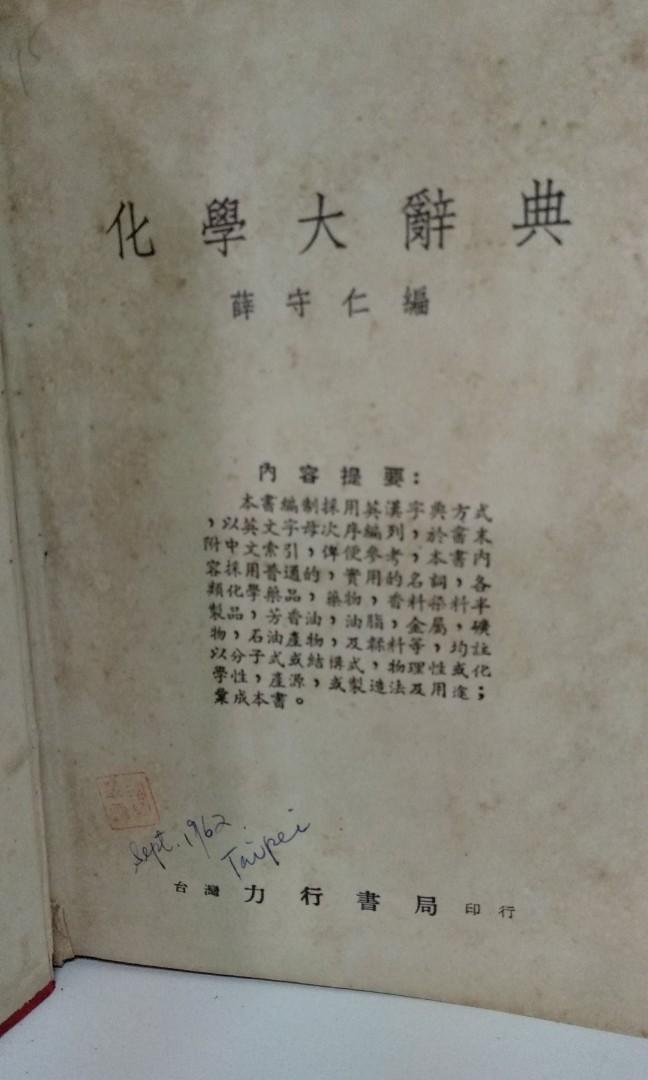 化學大辭典
薛守仁編
內容提要：
本書編制採用英漢字典方式
，以英文字母次序編列，於書末
附中文索引，俾便參考，本書內
容採用普通的，實用的名詞，各
類化學藥品，藥物，香料染料半
製品，芳香油，油脂，金屬，礦
物，石油產物，及條料等，均註
以分子式或結構式，物理性或化
學性，產源，或製造法及用途；
彙成本書。
Sept. 1962
Taipei
台灣 力行書局 印行